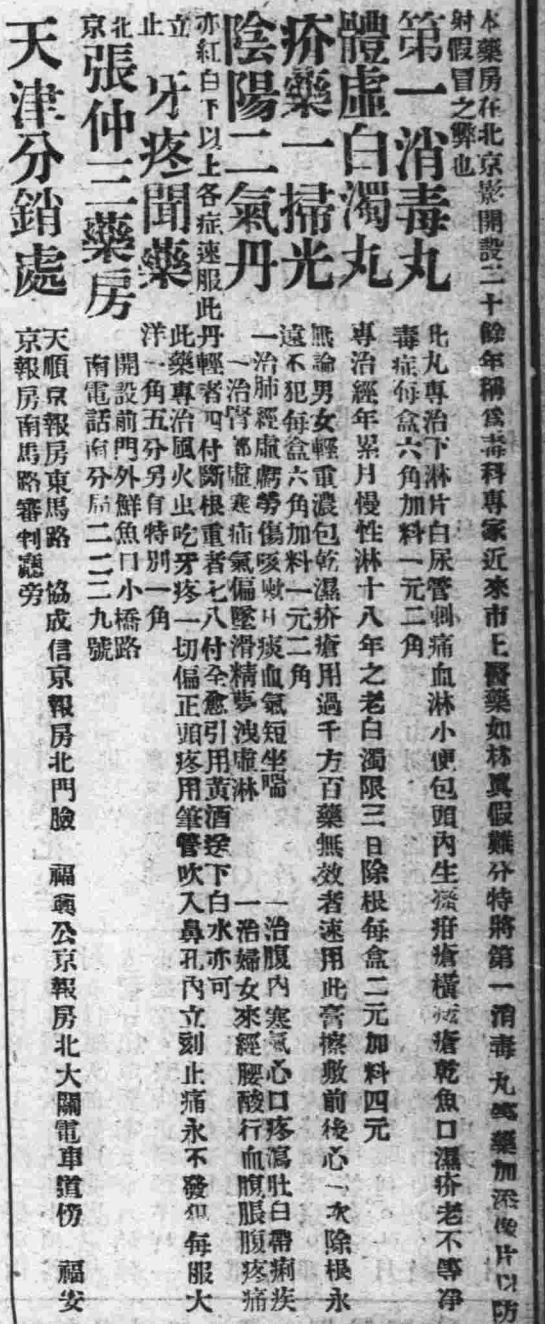 本藥房在北京影開設二十餘年稱爲毒科專家近來市上醫藥如林眞假難分特將第一消毒丸等藥加添像片以防
射假冒之弊也
第一消毒丸
此丸專治下淋片白尿管刺痛血淋小便包頭內生疳瘡橫痃瘡乾魚口濕疥老不等凈
毒症每盒六角加料一元二角
體虛白濁丸
專治經年累月慢性淋十八年之老白濁限三日除根每盒二元加料四元
疥藥一掃光
無論男女輕重濃包乾濕疥瘡用過千方百藥無效者速用此膏擦敷前後心一次除根永
遠不犯每盒六角加料一元二角
陰陽二氣丹
一治肺經虛癆勞傷咳嗽吐痰血氣短坐喘
一治腹內寒氣心口疼瀉肚白帶痢疾
一治腎部虛寒疝氣偏墜滑精夢洩虛淋
一治婦女來經腰酸行血腹脹腹疼痛
亦紅白下以上各症速服此丹輕者四付斷根重者七八付全愈引用黃酒送下白水亦可
立止牙疼聞藥
此藥專治風火虫吃牙疼一切偏正頭疼用筆管吹入鼻孔內立刻止痛永不發犯每服大
洋一角五分另有特別一角
北京張仲三藥房
開設前門外鮮魚口小橋路
南電話南分局二二二九號
天津分銷處
天順京報房東馬路 協成信京報房北門臉 福興公京報房北大關電車道傍 福安
京報房南馬路審判廳旁